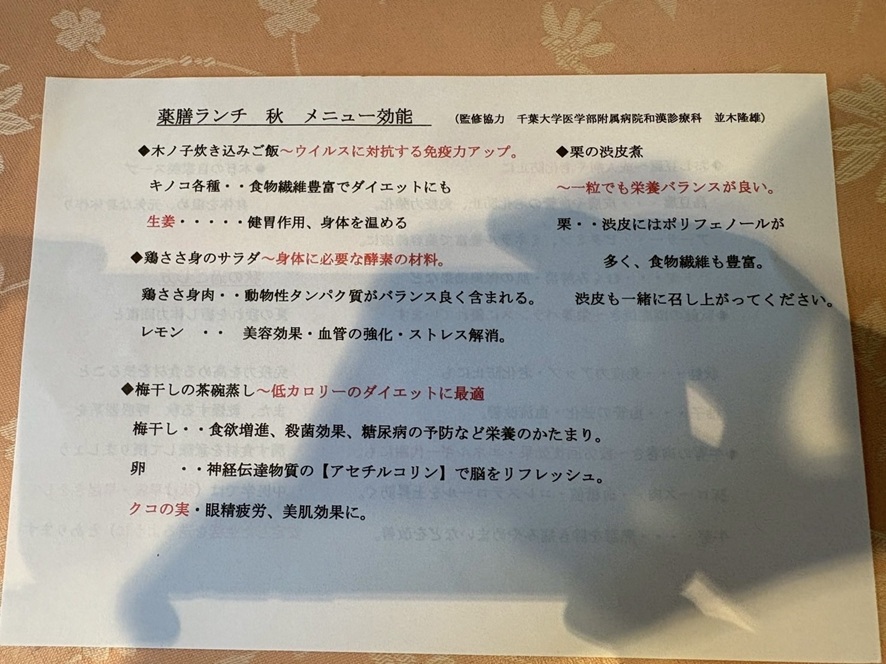 薬膳ランチ　秋　メニュー効能　（監修協力　千葉大学医学部附属病院和漢診療科　並木隆雄）
◆木ノ子炊き込みご飯～ウイルスに対抗する免疫力アップ。
キノコ各種・・食物繊維豊富でダイエットにも
生姜・・・・・健胃作用、身体を温める
◆鶏ささ身のサラダ～身体に必要な酵素の材料。
鶏ささ身肉・・動物性タンパク質がバランス良く含まれる。
レモン　・・　美容効果・血管の強化・ストレス解消。
◆梅干しの茶碗蒸し～低カロリーのダイエットに最適
梅干し・・食欲増進、殺菌効果、糖尿病の予防など栄養のかたまり。
卵　　・・神経伝達物質の【アセチルコリン】で脳をリフレッシュ。
クコの実・眼精疲労、美肌効果に。
◆栗の渋皮煮
～一粒でも栄養バランスが良い。
栗・・渋皮にはポリフェノールが
多く、食物繊維も豊富。
渋皮も一緒に召し上がってください。